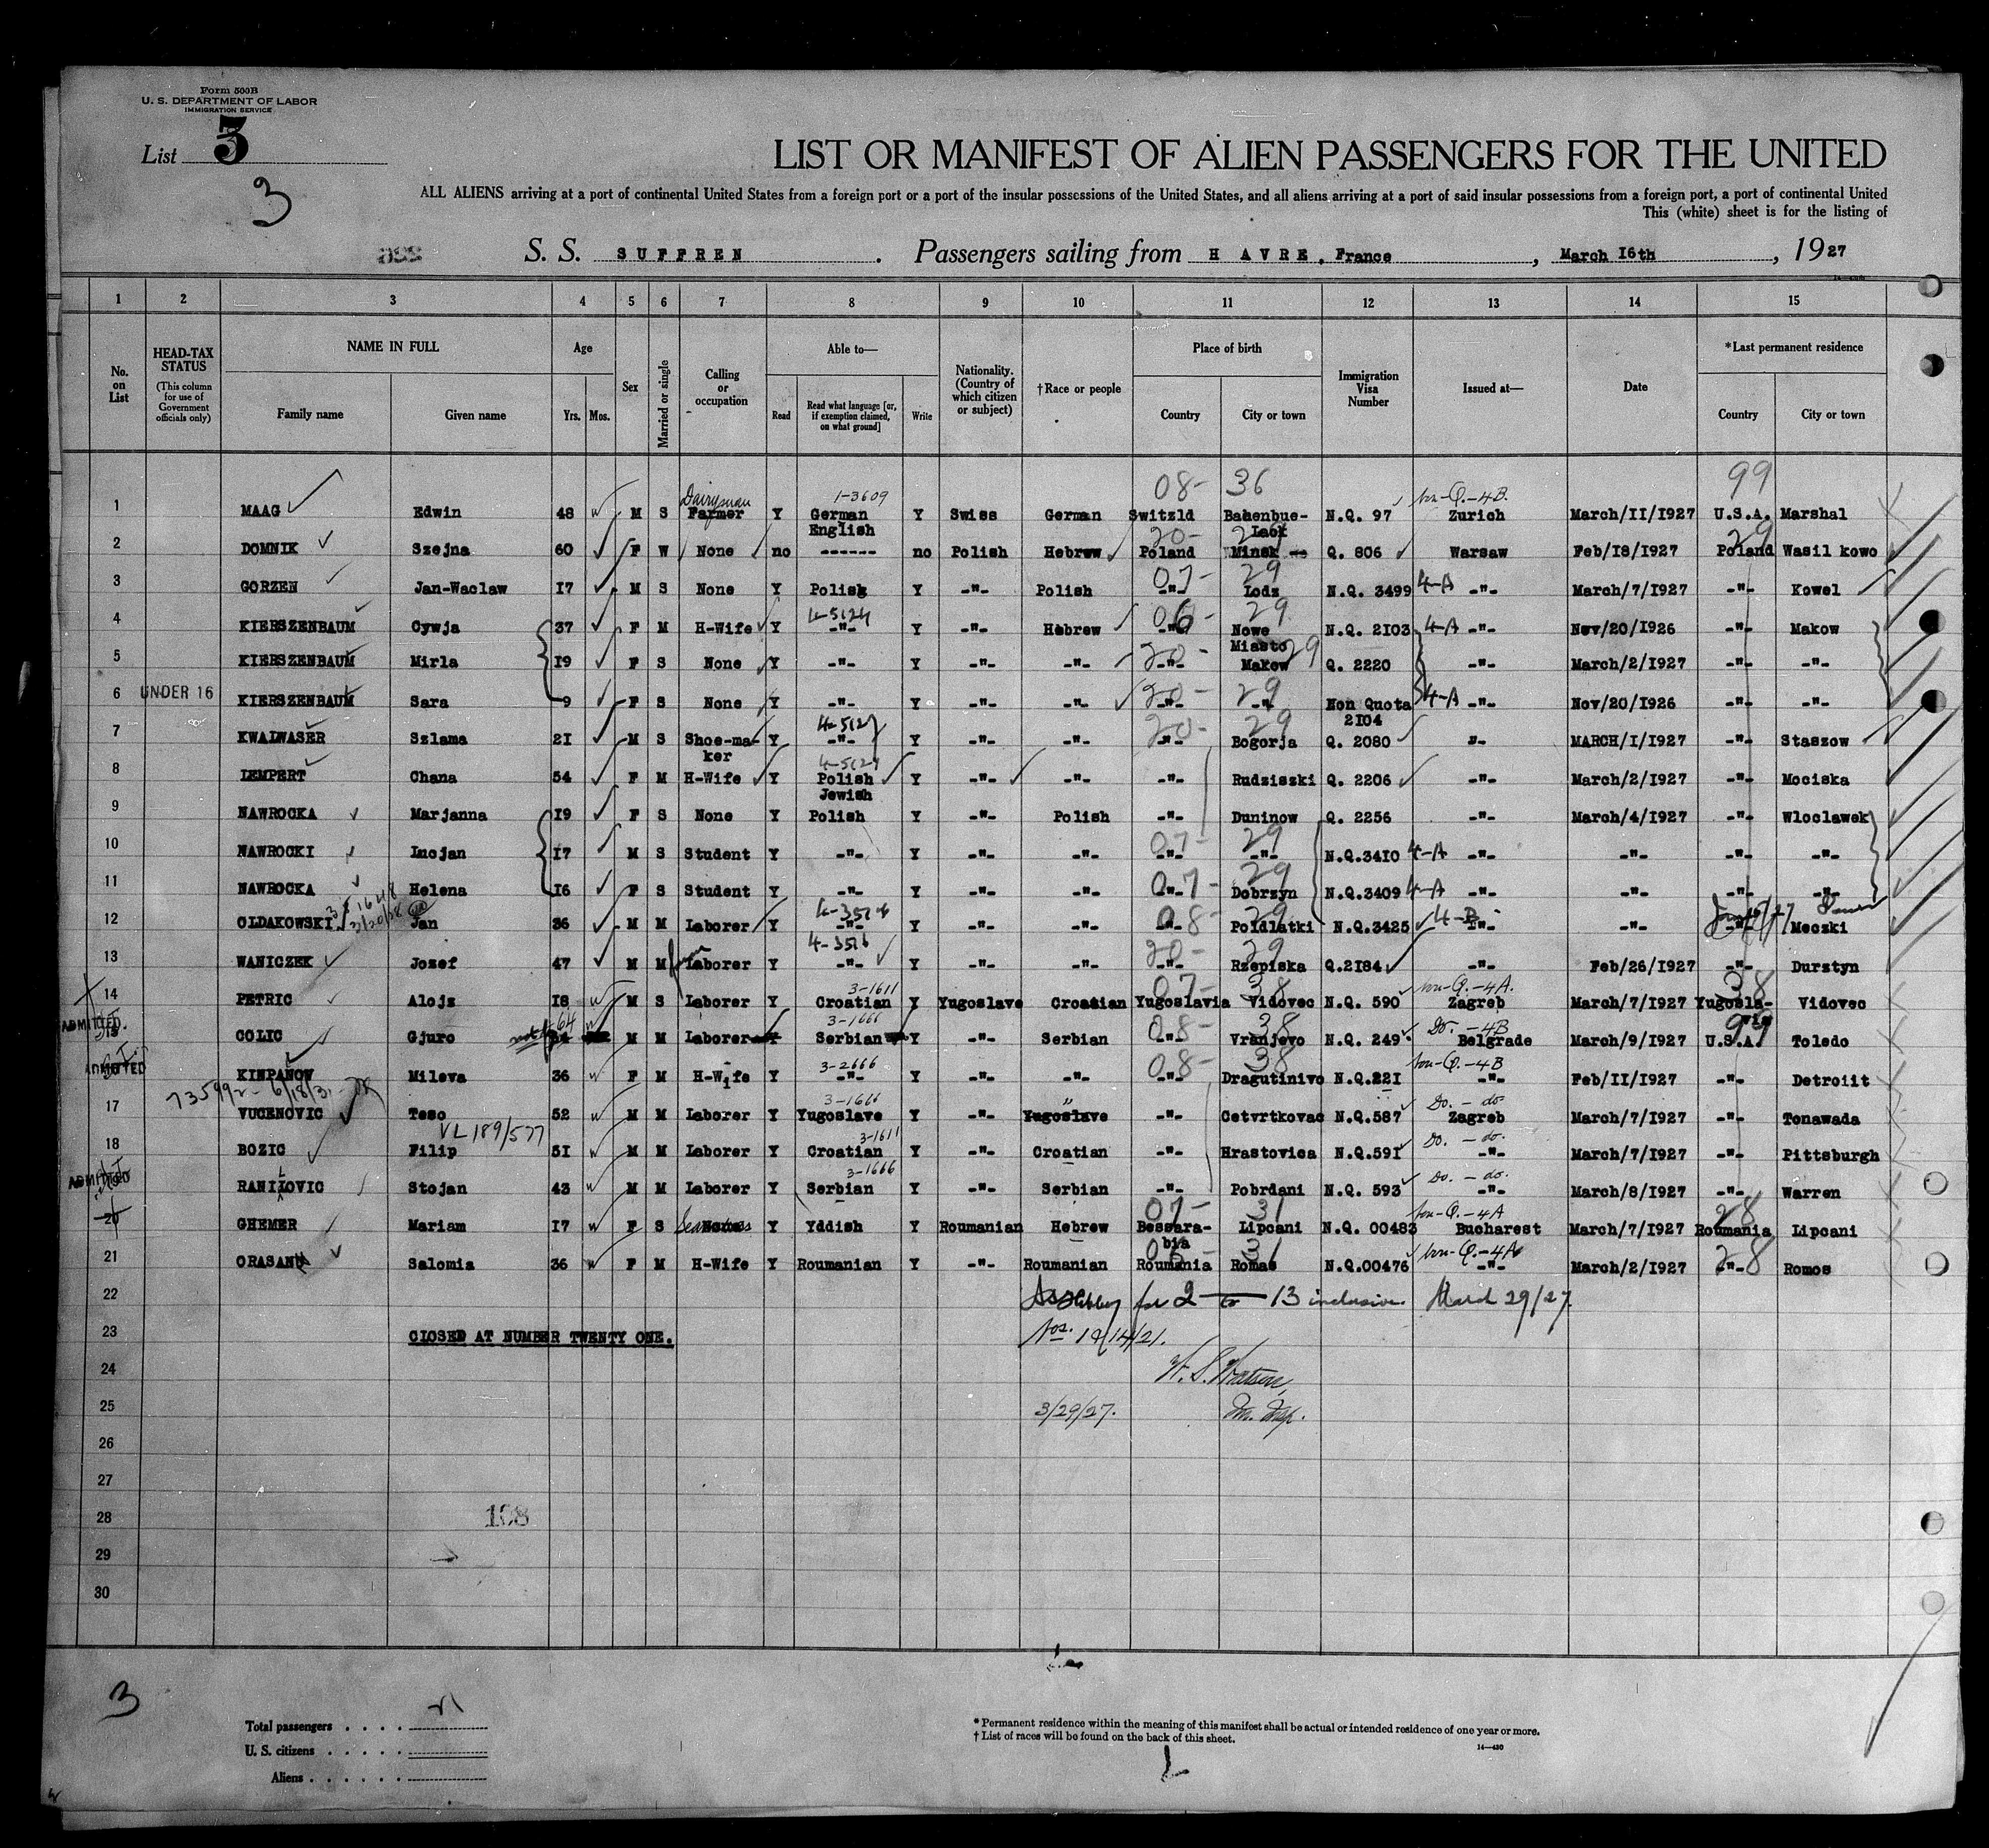 Form 500B
U. S. DEPARTMENT OF LABOR
IMMIGRATION SERVICE
List 3
3
LIST OR MANIFEST OF ALIEN PASSENGERS FOR THE UNITED
ALL ALIENS arriving at a port of continental United States from a foreign port or a port of the insular possessions of the United States, and all aliens arriving at a port of said insular possessions from a foreign port, a port of continental United
This (white) sheet is for the listing of
S. S. SUFFREN. Passengers sailing from H AVRE, France, March 16th, 1927
1 2 3 4 5 6 7 8 9 10 11 12 13 14 15
No. on List
HEAD-TAX STATUS (This column for use of Government officials only)
NAME IN FULL Family name Given name
Age Yrs. Mos.
Sex
Married or single
Calling or occupation
Able to— Read Read what language [or, if exemption claimed, on what ground] Write
Nationality. (Country of which citizen or subject)
†Race or people
Place of birth Country City or town
Immigration Visa Number
Issued at—
Date
*Last permanent residence Country City or town
08- 36 99
1 MAAG Edwin 48 M S Dairyman Farmer Y 1-3609 German English Y Swiss German Switzld N.Q. 97 non-Q.-4B. Zurich March/11/1927 U.S.A. Marshal
2 DOMNIK Szejna 60 F W None no ------ no Polish Hebrew 20- Poland Minsk Q. 806 Warsaw Feb/18/1927 29 Poland Wasil kowo
3 GORZEN Jan-Waclaw 17 M S None Y Polish Y -"- Polish 07- -"- 29 Lodz N.Q. 3499 4-A -"- March/7/1927 -"- Kowel
4 KIERSZENBAUM Cywja 37 F M H-Wife Y -"- Y -"- Hebrew 06- -"- 29 Nowe Miasto N.Q. 2103 4-A -"- Nov/20/1926 -"- Makow
5 KIERSZENBAUM Mirla 19 F S None Y -"- Y -"- -"- 20- -"- 29 Makow Q. 2220 -"- March/2/1927 -"- -"-
6 UNDER 16 KIERSZENBAUM Sara 9 F S None Y -"- Y -"- -"- 20- -"- 29 -"- Non Quota 2104 4-A -"- Nov/20/1926 -"- -"-
7 KWALWASER Szlama 21 M S Shoe-maker Y -"- Y -"- -"- 20- -"- 29 Bogorja Q. 2080 "- MARCH/1/1927 -"- Staszow
8 LEMPERT Chana 54 F M H-Wife Y Polish Jewish Y -"- -"- -"- Rudziszki Q. 2206 -"- March/2/1927 -"- Mociska
9 NAWROCKA Marjanna 19 F S None Y Polish Y -"- Polish -"- Duninow Q. 2256 -"- March/4/1927 -"- Wloclawek
10 NAWROCKI Lucjan 17 M S Student Y -"- Y -"- -"- 07- -"- 29 -"- N.Q.3410 4-A -"- -"- -"- -"-
11 NAWROCKA Helena 16 F S Student Y -"- Y -"- -"- 07- -"- 29 Dobrzyn N.Q.3409 4-A -"- -"- -"- -"-
12 OLDAKOWSKI Jan 36 M M Laborer Y -"- Y -"- -"- 08- -"- 29 Poidlatki N.Q.3425 4-B -"- -"- -"- Meczki
13 WANICZEK Josef 47 M M Laborer Y 4-3516 -"- Y -"- -"- 20- -"- 29 Rzepiska Q.2184 -"- Feb/26/1927 -"- Durstyn
14 PETRIC Alojz 18 M S Laborer Y 3-1611 Croatian Y Yugoslave Croatian 07- Yugoslavia 38 Vidovec N.Q. 590 non-Q.-4A. Zagreb March/7/1927 38 Yugoslavia Vidovec
ADMITTED. 15 COLIC Gjuro 64 M M Laborer Y 3-1666 Serbian Y -"- Serbian 08- -"- 38 Vranjevo N.Q. 249 Do. -4B Belgrade March/9/1927 99 U.S.A. Toledo
ADMITTED KINPANOV Mileva 36 F M H-Wife Y 3-2666 -"- Y -"- -"- 08- -"- 38 Dragutinivo N.Q.221 non-Q.-4B -"- Feb/11/1927 -"- Detroiit
17 VUCENOVIC Teso 52 M M Laborer Y 3-1666 Yugoslave Y -"- Yugoslave " -"- Cetvrtkovac N.Q.587 Do. - do Zagreb March/7/1927 -"- Tonawada
VL 189/577
18 BOZIC Filip 51 M M Laborer Y 3-1611 Croatian Y -"- Croatian -"- Hrastovica N.Q.591 Do. - do. -"- March/7/1927 -"- Pittsburgh
ADMITTED RANILOVIC Stojan 43 M M Laborer Y 3-1666 Serbian Y -"- Serbian -"- Pobrdani N.Q. 593 Do. - do. -"- March/8/1927 -"- Warren
20 GHEMER Mariam 17 F S Y Yddish Y Roumanian Hebrew 07- Bessarabia 31 Lipcani N.Q. 00483 non-Q.-4A Bucharest March/7/1927 28 Roumania Lipcani
21 Salomia 36 F M H-Wife Y Roumanian Y -"- Roumanian Roumania 31 Romos N.Q.00476 non-Q.-4A -"- March/2/1927 28 -"- Romos
22 for 2 to 13 inclusive. March 29/27
23 CLOSED AT NUMBER TWENTY ONE. Nos.
24 W. S. Watson,
25 3/29/27. Im. Insp.
26
27
28 108
29
30
3
Total passengers 21
U. S. citizens
Aliens
*Permanent residence within the meaning of this manifest shall be actual or intended residence of one year or more.
†List of races will be found on the back of this sheet.
14—430